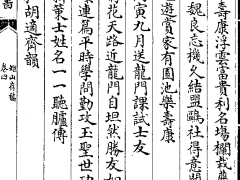 壽康浮雲富貴利名場欄栽藥
魏良忘機久結盟鷗社得意閒
遊賞家有園池樂壽康
寅九月送龍門課試士友
花天路近龍門自坦然勝友如
連篇平時學問勤攻玉聖世功
策士姓名一一聽臚傳
胡適齋韻
卷四